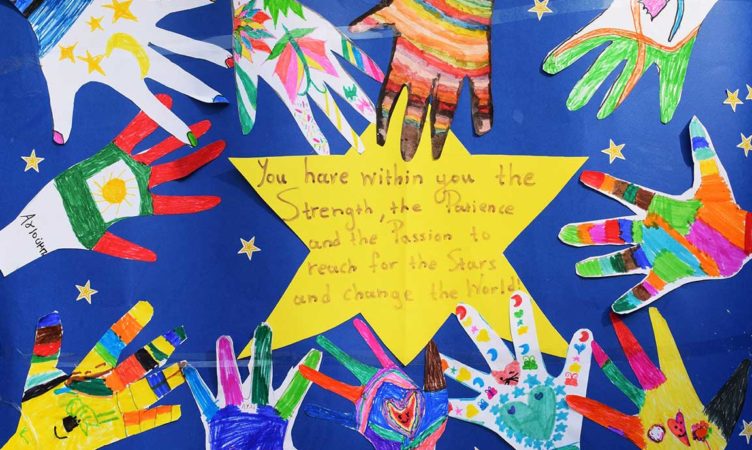 You have within you the
Strength, the Patience
and the Passion to
reach for the Stars
and change the World!